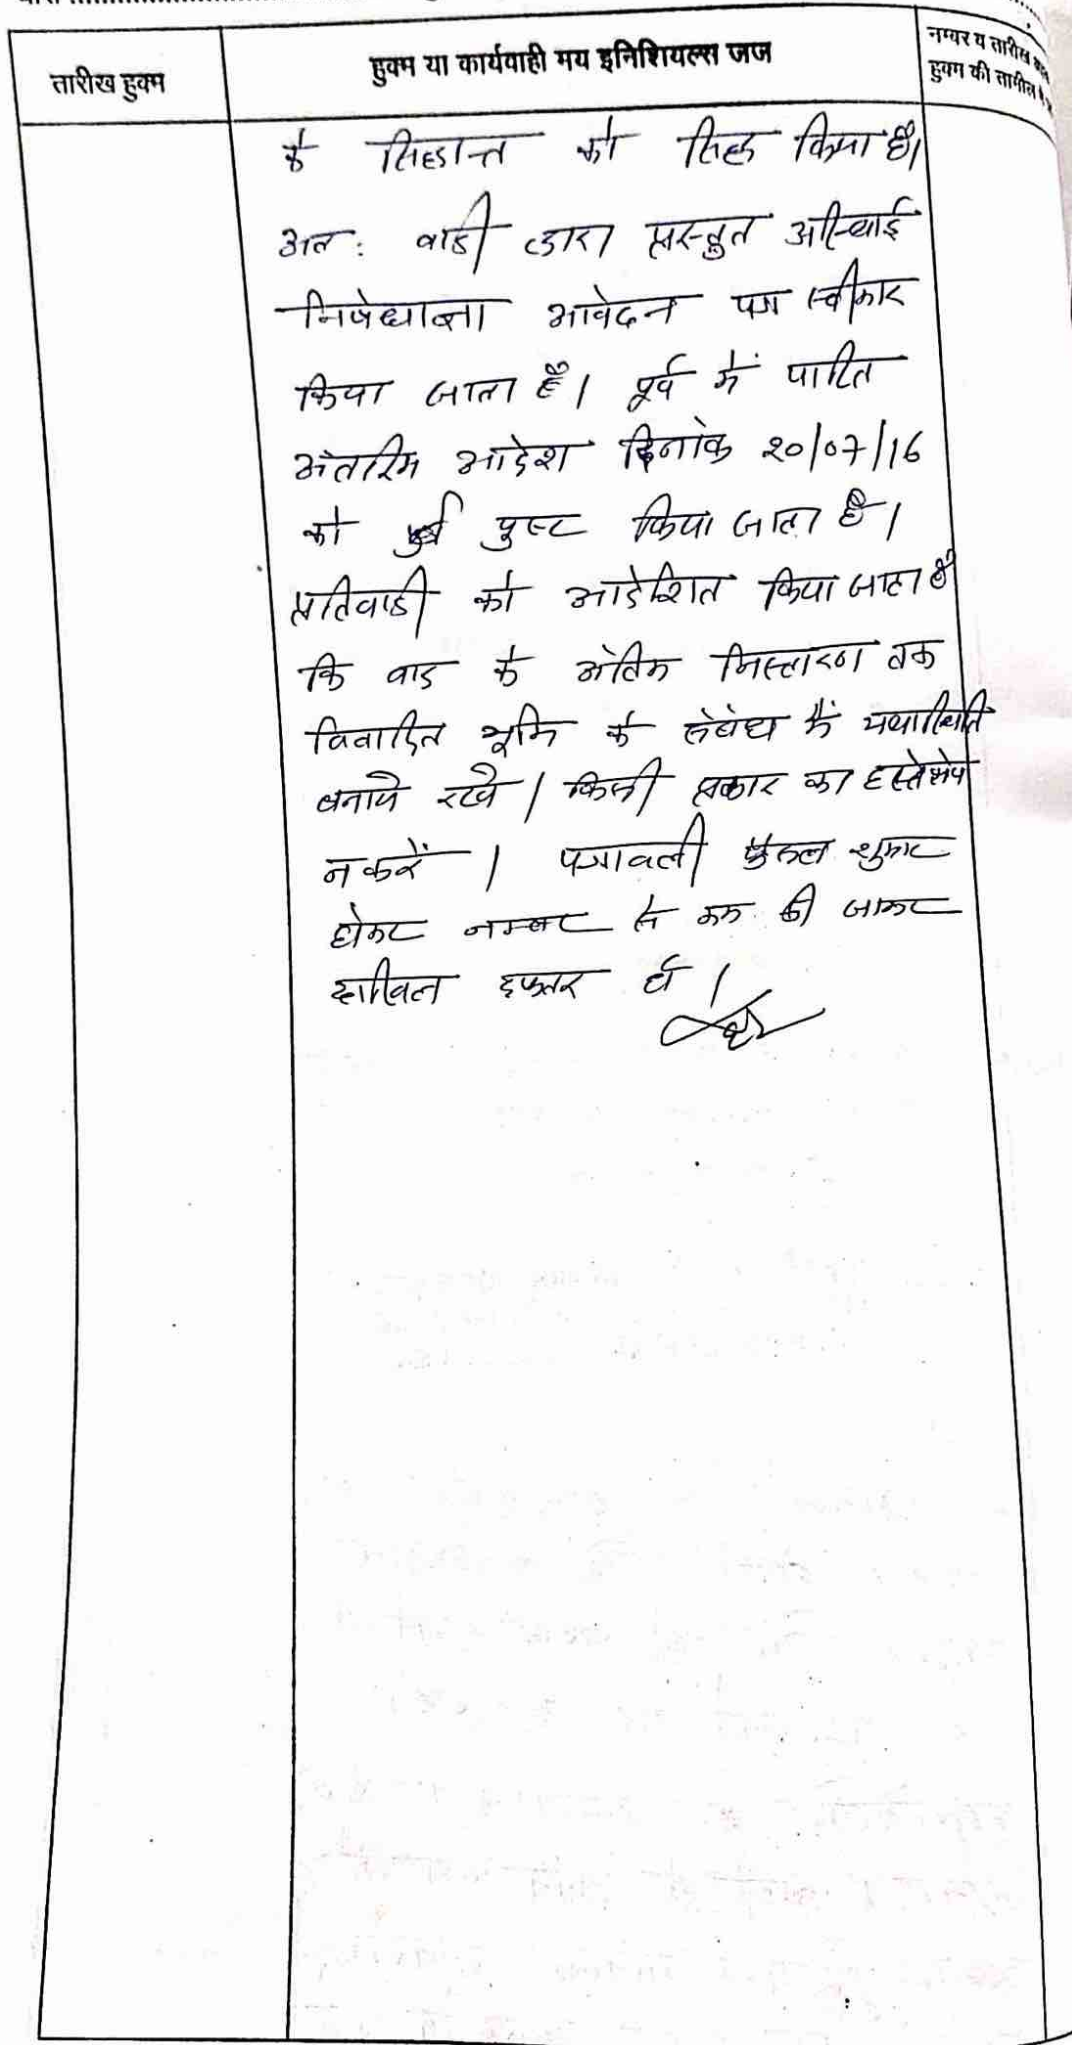 तारीख हुक्म
हुक्म या कार्यवाही मय इनिशियल्स जज
नम्बर व तारीख
हुक्म की तामील
के सिद्धान्त को सिद्ध किया है।
अतः वादी द्वारा प्रस्तुत अस्थाई
निषेधाज्ञा आवेदन पत्र स्वीकार
किया जाता है। पूर्व में पारित
अंतरिम आदेश दिनांक 20/07/16
को पुष्ट किया जाता है।
प्रतिवादी को आदेशित किया जाता है
कि वाद के अंतिम निस्तारण तक
विवादित भूमि के संबंध में यथास्थिति
बनाये रखे। किसी प्रकार का हस्तक्षेप
न करें। पत्रावली फैसल शुमार
होकर नम्बर से कम की जाकर
दाखिल दफ्तर हो।